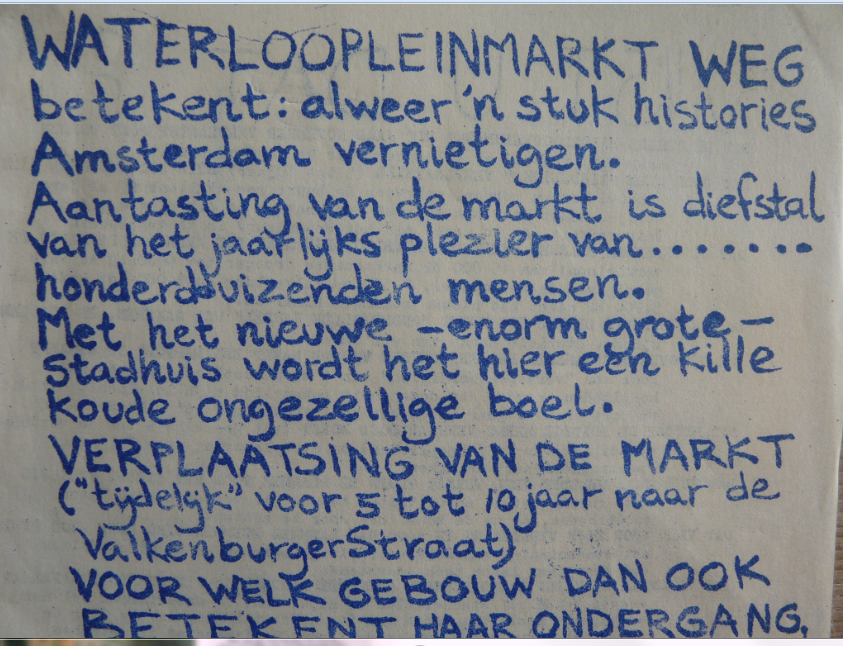 WATERLOOPLEINMARKT WEG
betekent: alweer 'n stuk histories
Amsterdam vernietigen.
Aantasting van de markt is diefstal
van het jaarlijks plezier van........
honderdduizenden mensen.
Met het nieuwe -enorm grote-
stadhuis wordt het hier een kille
koude ongezellige boel.
VERPLAATSING VAN DE MARKT
("tijdelijk" voor 5 tot 10 jaar naar de
ValkenburgerStraat)
VOOR WELK GEBOUW DAN OOK
BETEKENT HAAR ONDERGANG.